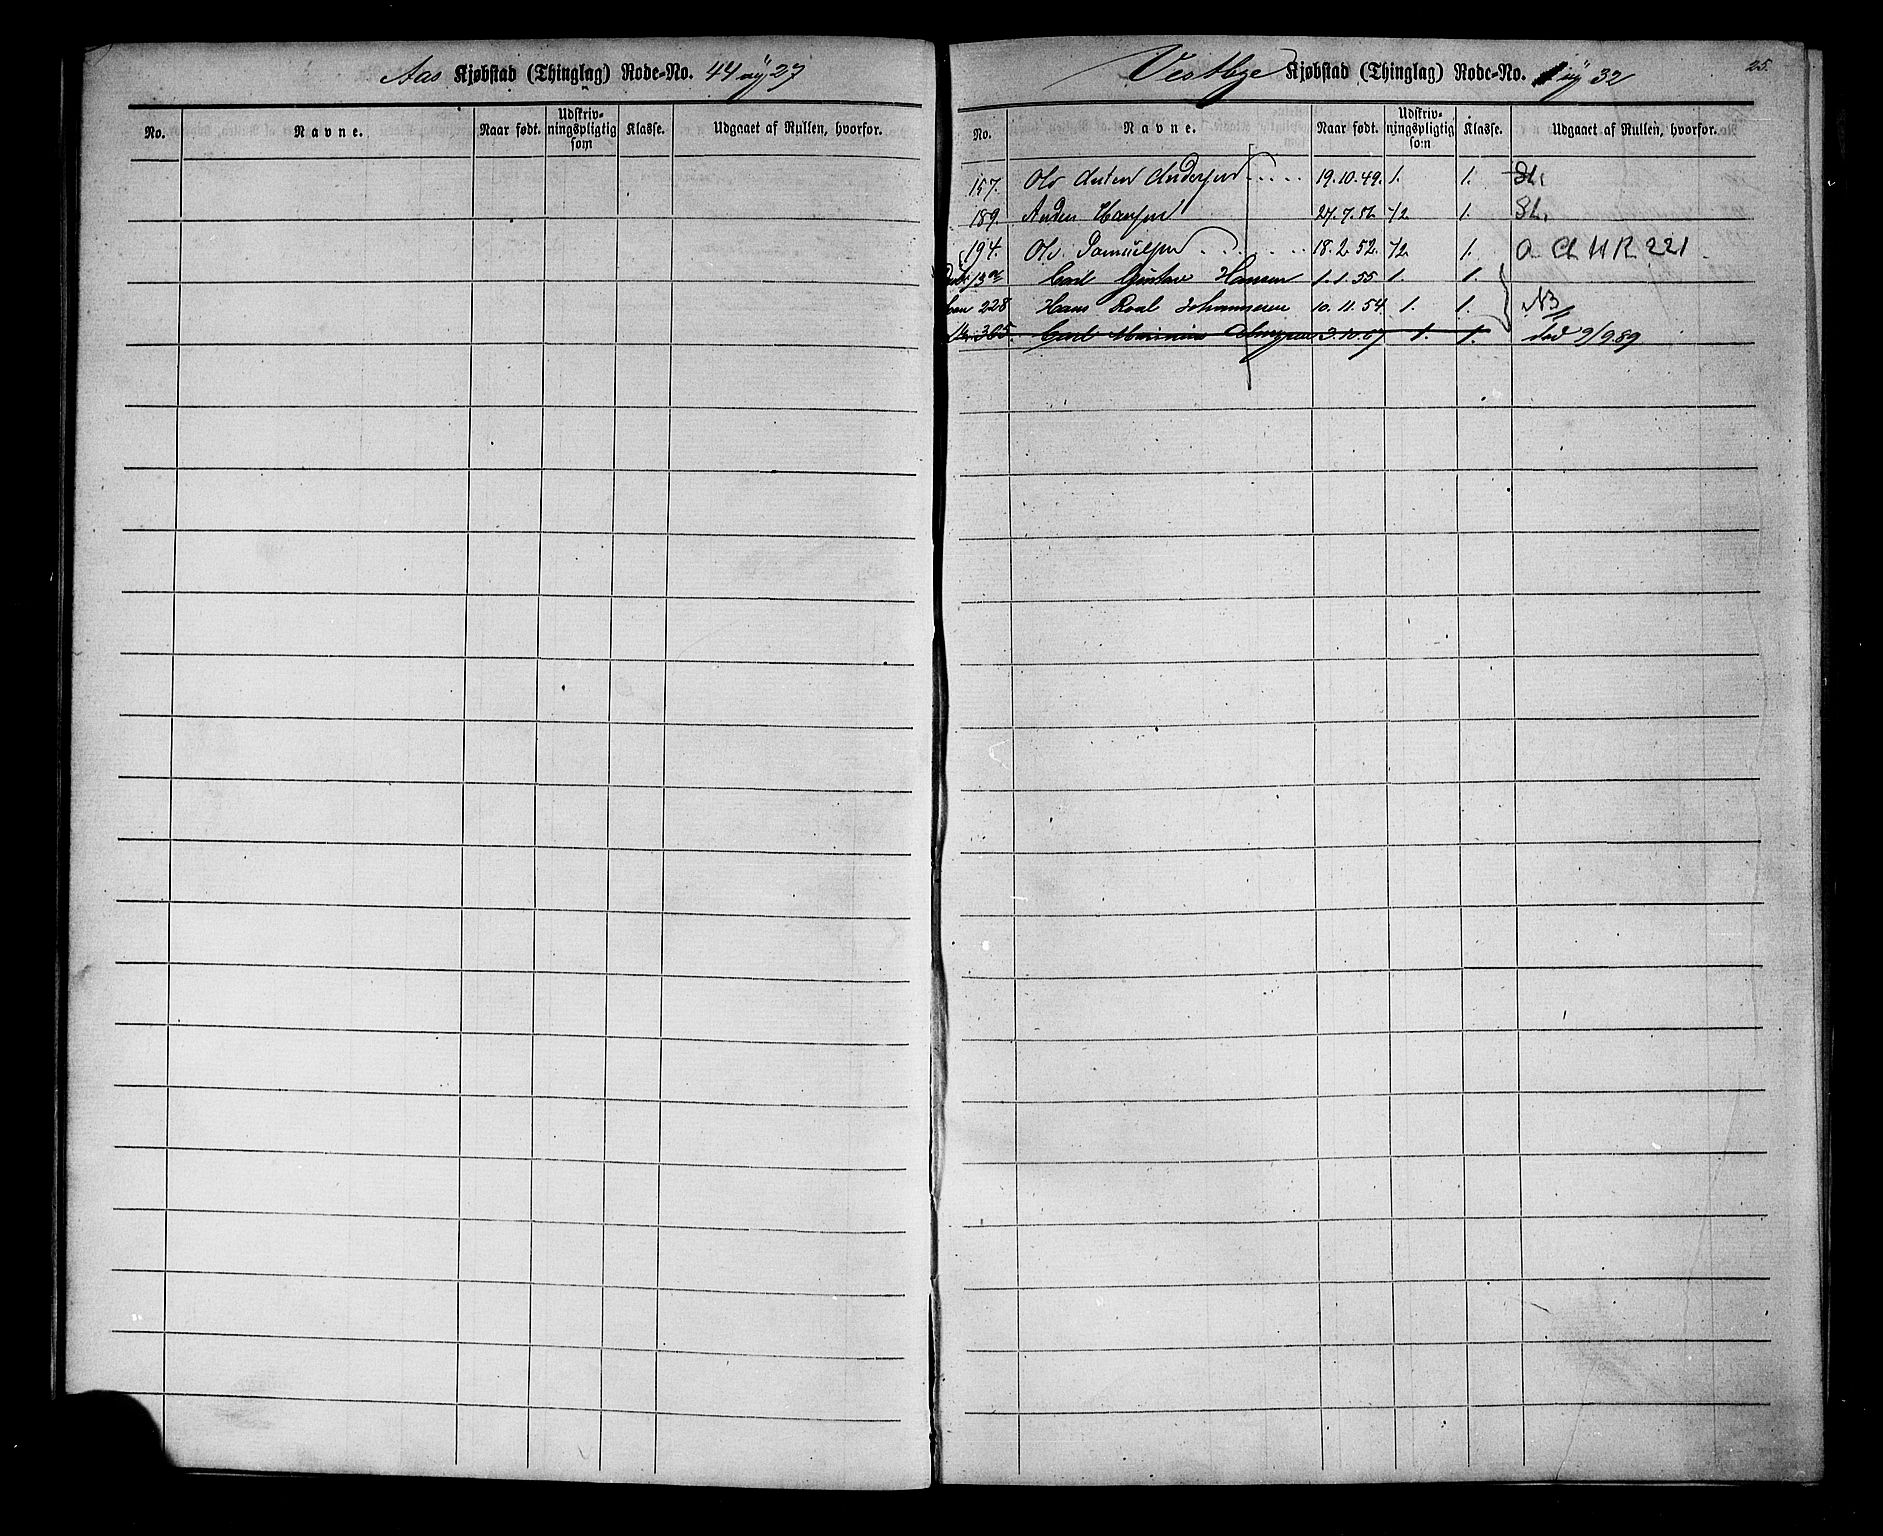 Aas Kjøbstad (Thinglag) Rode-No. 44 ny 27
No. Navne. Naar født. Udskriv-ningspligtig som Klasse. Udgaaet af Rullen, hvorfor.
Vestby Kjøbstad (Thinglag) Rode-No. 1 ny 32
25.
No. Navne. Naar født. Udskriv-ningspligtig som Klasse. Udgaaet af Rullen, hvorfor.
157. Ole Anton Andersen 19.10.49. 1. 1. Sl.
189. Anders Hansen 27.7.56 1/2 1. Sl.
194. Ole Samuelsen 18.2.52. 1/2. 1. a Ch H R 221
13a Carl Gustav Hansen 1.1.55 1. 1.
228 Hans Roal Johannesen 10.11.54 1. 1. NB
305. Carl Marinius 3.10.67 1. 1. død 9/9 89